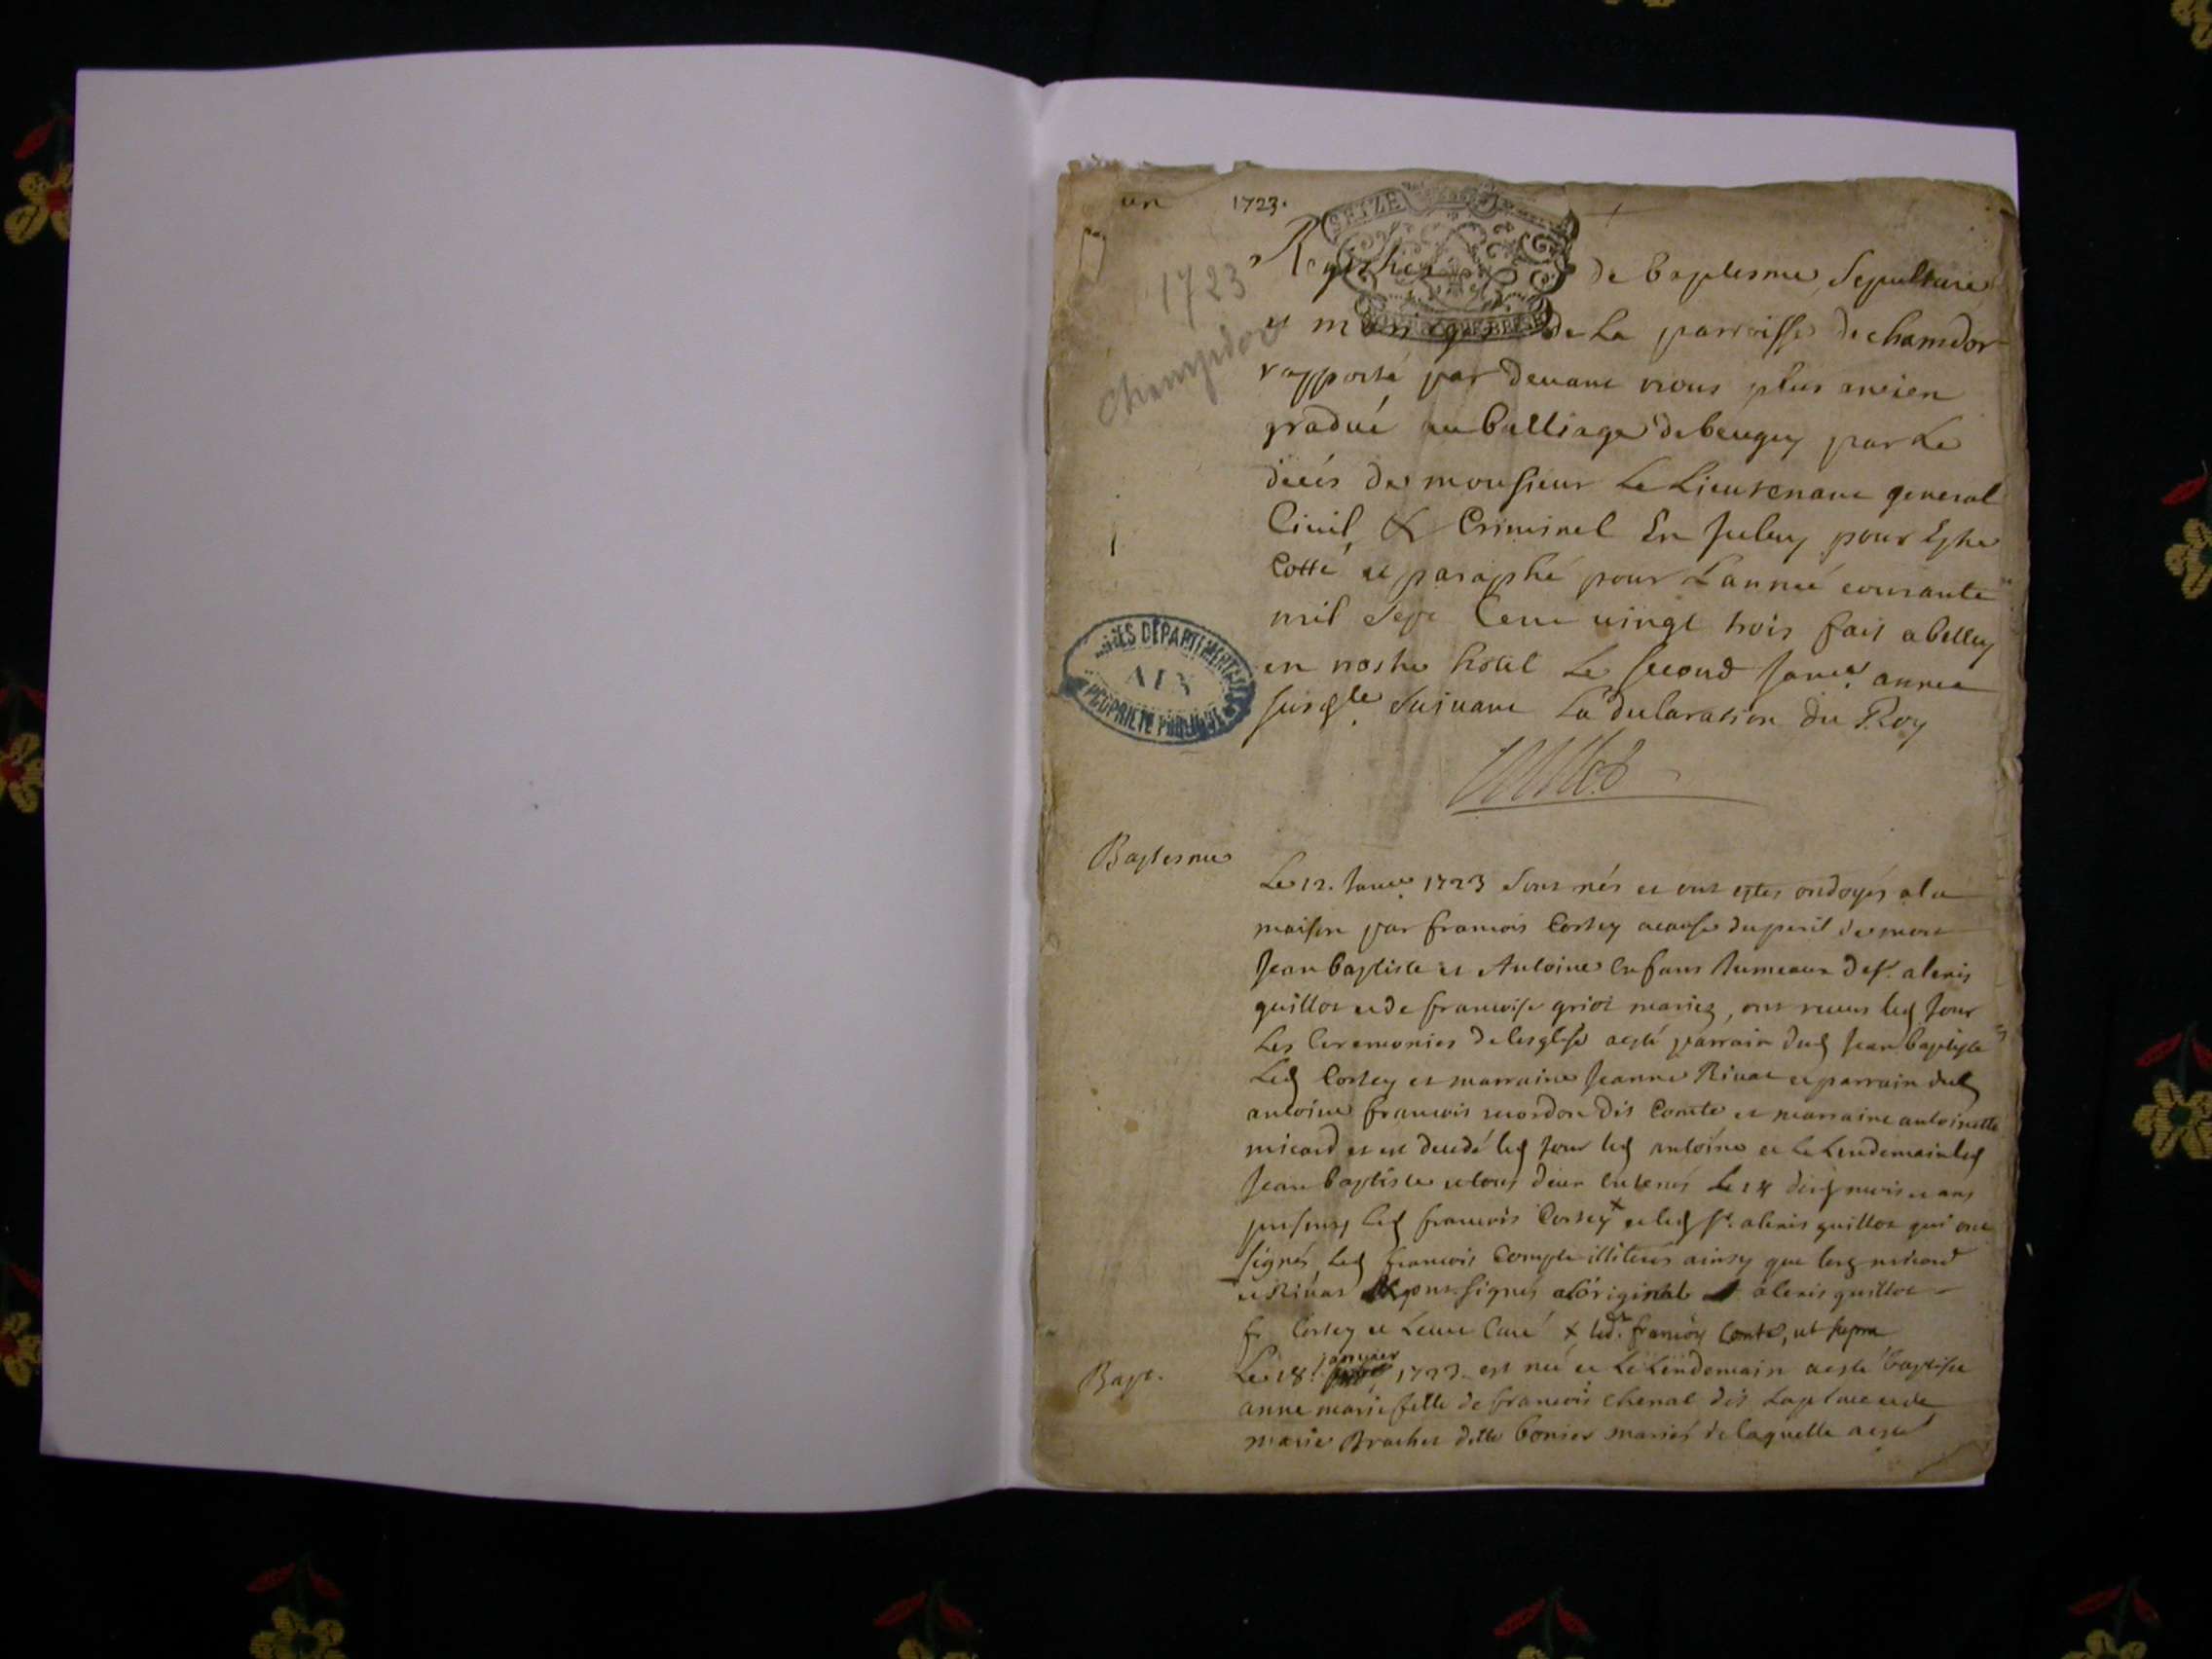 un 1723.
SEIZE
1723
Champdor
Registres de baptesme, Sepulture
et mariages de La parroisse de chamdor
rapporté par devant nous plus ancien
gradué au balliage de beugey par Le
décés de monsieur Le Lieutenant general
Civil & Criminel En Iceluy pour Estre
Cotté et paraphé pour L'année courante
mil Sept Cent vingt trois fait a belley
en nostre hotel Le second Janer. année
susdte. Suivant La declaration du Roy
ARCHIVES DÉPARTEMENTALES
AIN
PROPRIÉTÉ PUBLIQUE
Baptesme
Le 12. Janer. 1723 sont nés et ont estes ondoyés a la
maison par francois Corsey acause du peril de mort
Jean baptiste et Antoine Enfans Jumeaux de sr. alexis
guillot et de francoise griot mariez, ont receu led Jour
Les Ceremonies de lesglise a esté parrain dud Jean baptiste
Led Corsey et marraine Jeanne Rivat et parrain dud
antoine francois dit Comte et marraine antoinette
micard et est decedé led Jour led antoine et Le Lendemain led
Jean baptiste et tous deux enterrés Le 14 desd mois et ans
presents led francois Corsey x et led sr. alexis guillot qui ont
signés, Led francois Compte illiterés ainsy que lesd micard
et Rivat signés a loriginal alexis guillot
fr Corsey et Curé x led. francois Comte, ut supra
Bapt.
Le 18. janvier 1723 est née et Le Lendemain a esté baptisée
anne marie fille de francois chenal dit Laplace et de
marie Brachet ditte bonier mariés de laquelle a esté